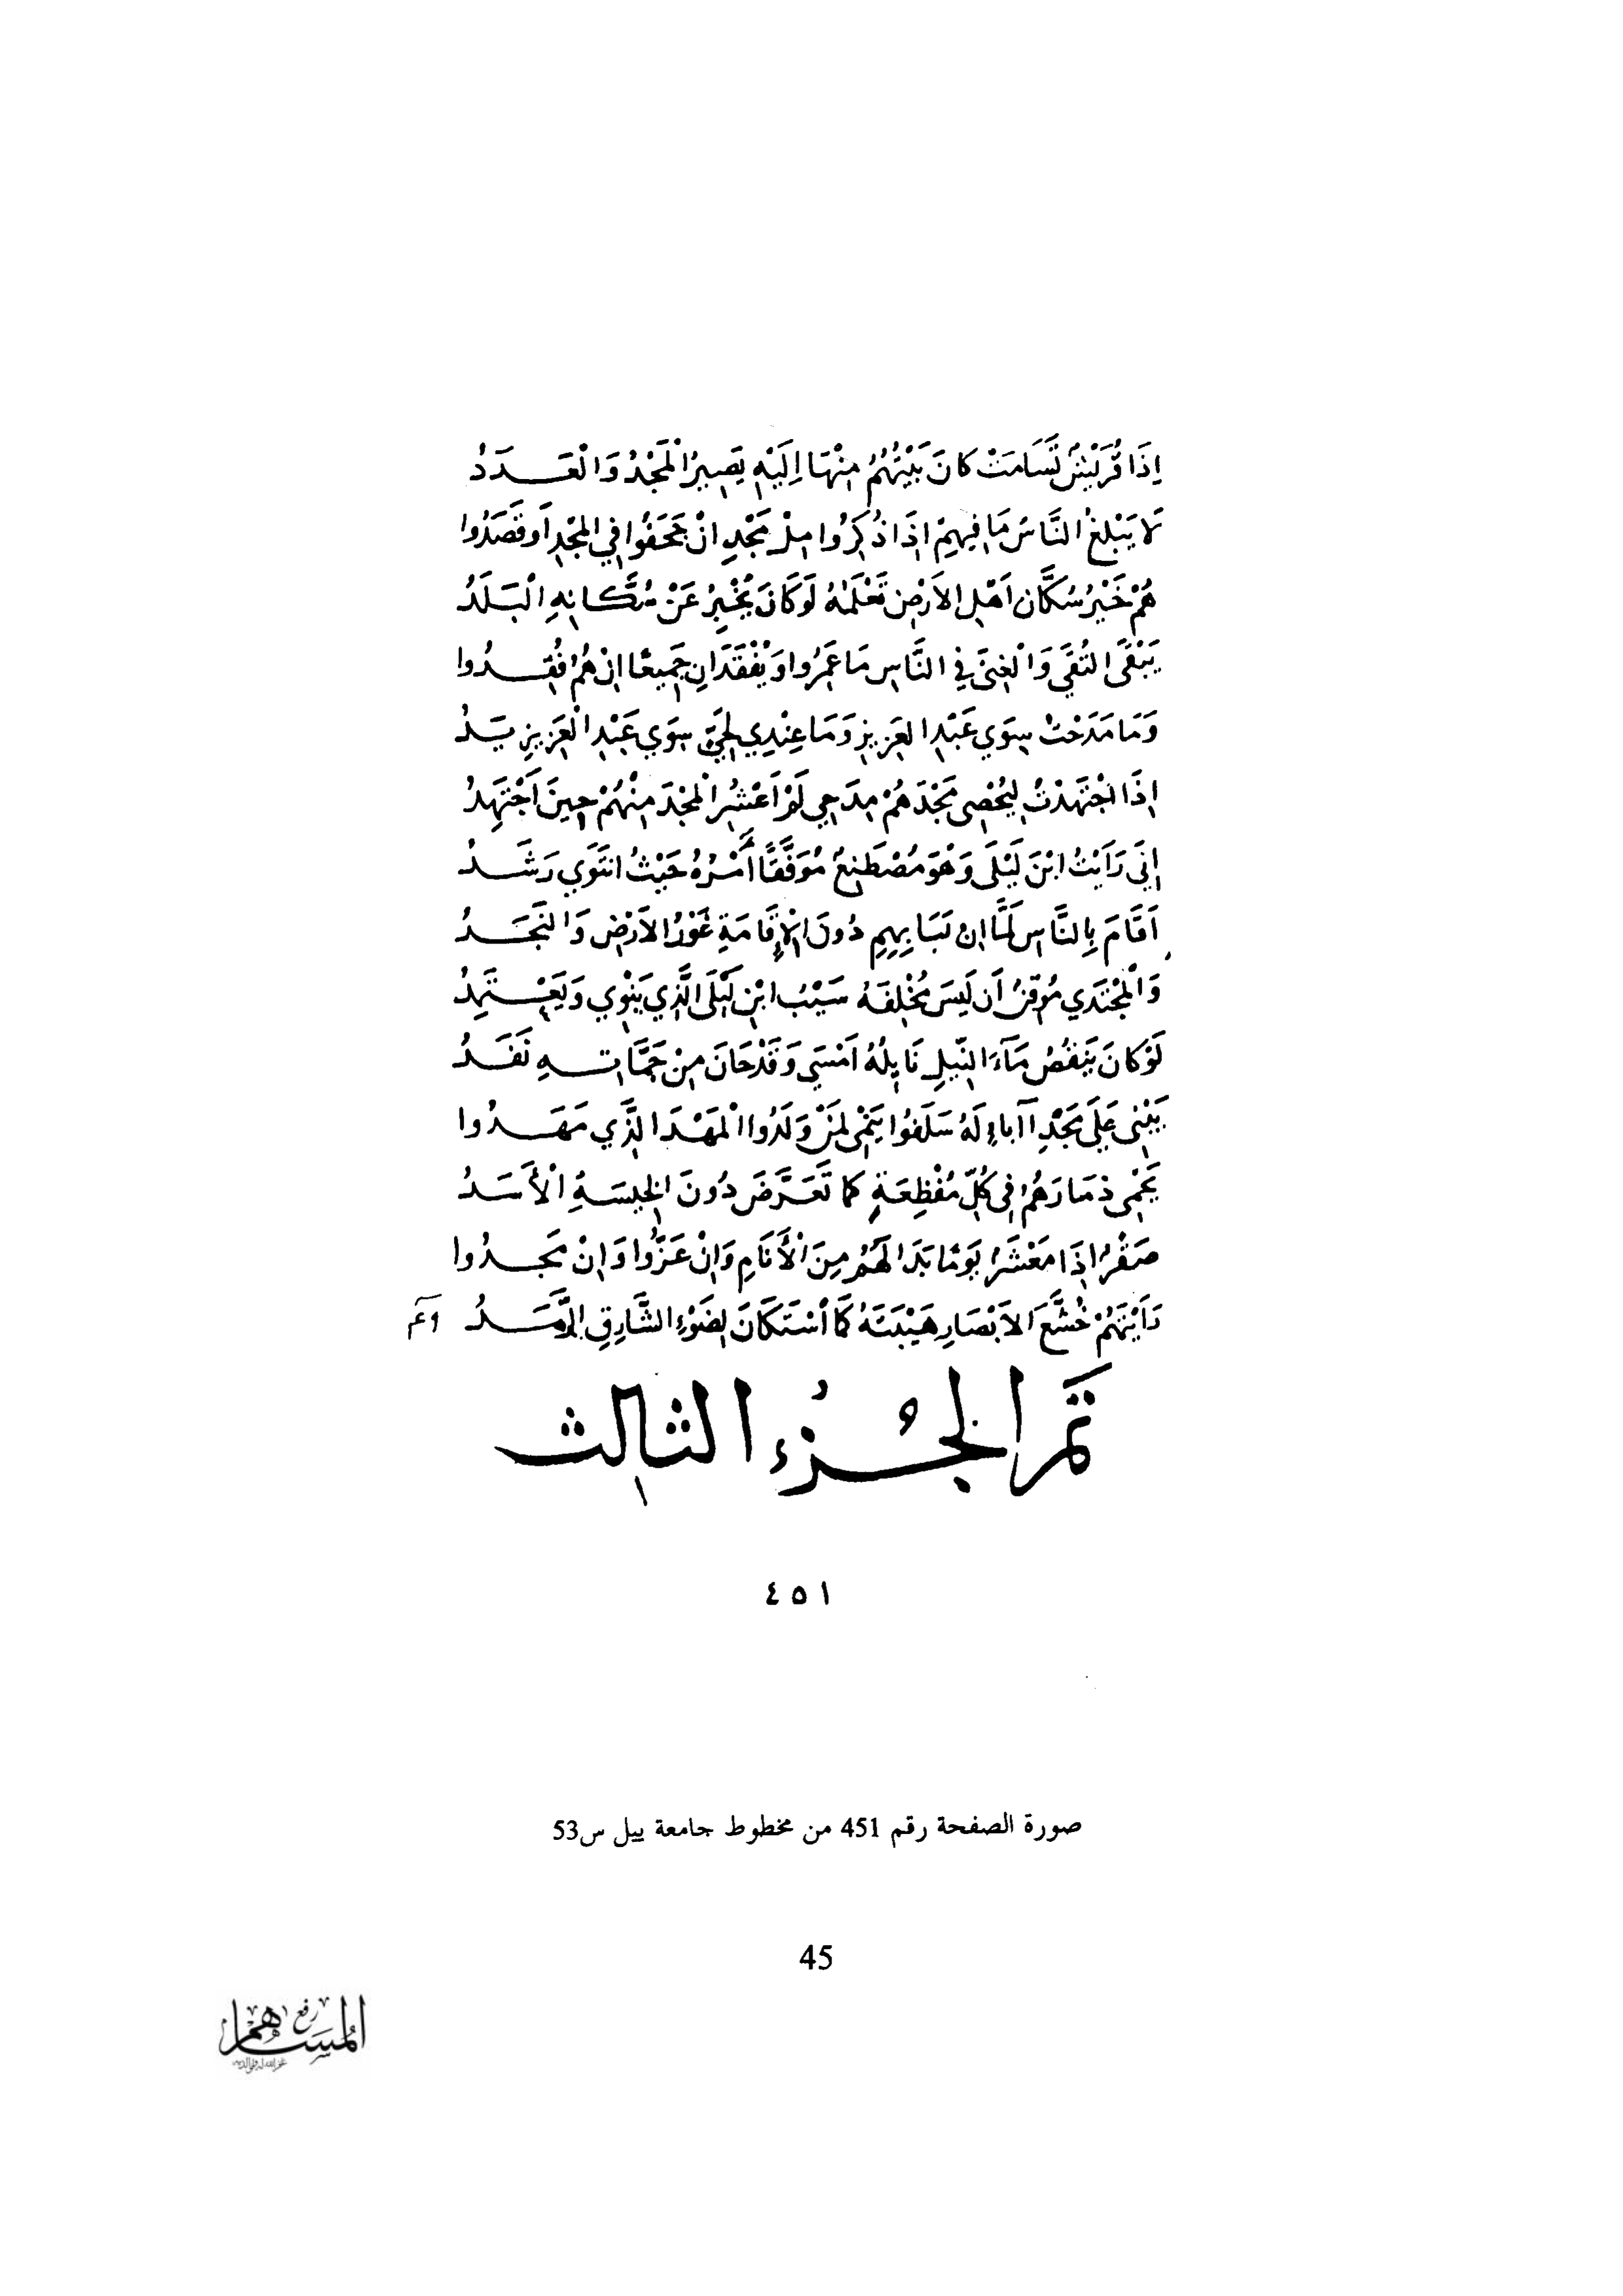 إِذَا قُرَيْشٌ تَسَامَتْ كَانَ بَيْتُهُمُ مِنْهَا إِلَيْهِ يَصِيرُ الْمَجْدُ وَالْعَدَدُ
لَا يَبْلُغُ النَّاسُ مَا فِيهِمْ إِذَا ذُكِرُوا مِلْ مَجْدِ انْ جَحَفُوا فِي الْمَجْدِ أَو قَصَدُوا
هُمْ خَيْرُ سُكَّانِ اَهْلِ الاَرْضِ نَعْلَمُهُ لَوْ كَانَ يُخْبِرُ عَنْ سُكَّانِهِ الْبَلَدُ
يَبْقَى التُّقَى وَالْغِنَى فِي النَّاسِ مَا عَمَرُوا وَيُفْقَدَانِ جَمِيعًا انْ هُمُ فُقِدُوا
وَمَا مَدَحْتُ سِوَي عَبْدِ العَزِيزِ وَمَا عِنْدِي لِحَيٍّ سِوَي عَبْدِ الْعَزِيزِ يَدُ
اِذَا اجْتَهَدْتُ لِيُحْصِى مَجْدَهُمْ مِدَحِي لَمْ اَعْشُرِ الْمَجْدَ مِنْهُمْ حِينَ اَجْتَهِدُ
اِنِّي رَاَيْتُ ابْنَ لَيْلَى وَهْوَ مُصْطَنِعٌ مُوَفَّقًا أَمْرُهُ حَيْثُ انْتَوَي رَشَدُ
اَقَامَ بِالنَّاسِ لَمَّا ان نَبَا بِهِمِ دُونَ الْإِقَامَةِ غَوْرُ الاَرْضِ وَالنَّجَدُ
وَالْمُجْتَدِي مُوقِنٌ أَن لَيسَ مُخْلِفَهُ سَيْبُ ابْنِ لَيْلَى الَّذِي يَنْوِي وَيَعْتَمِدُ
لَوْ كَانَ يَنْقُصُ مَآءَ النِّيلِ نَايِلُهُ اَمْسَى وَقَدْ حَانَ مِنْ جَمَّاتِهِ نَفَدُ
يَبْنِى عَلَى مَجْدِ اآبَاءٍ لَهُ سَلَفُوا يَنْمِى لِمَنْ وَلَدُوا الْمَهْدَ الَّذِي مَهَدُوا
يَحْمِى ذِمَارَهُمُ فِى كُلِّ مُفْظِعَةٍ كَمَا تَعَرَّضَ دُونَ الْخِيسَةِ الْأَسَدُ
صَقْرٌ اِذَا مَعْشَرٌ يَوْمًا بَدَا لَهُمُ مِنَ الْأَنَامِ وَانْ عَزُّوا وَانْ مَجُدُوا
رَاَيْتَهُمْ خُشَّعَ الاَبْصَارِ هَيْبَتَهُ كَمَا اسْتَكَانَ لِضَوْءِ الشَّارِقِ الرَّمِدُ
تَمَّ الْجُزْءُ الثالِث
٤٥١
صورة الصفحة رقم 451 من مخطوط جامعة ييل س53
45
رفع
المساهم
غفر الله له ولوالديه